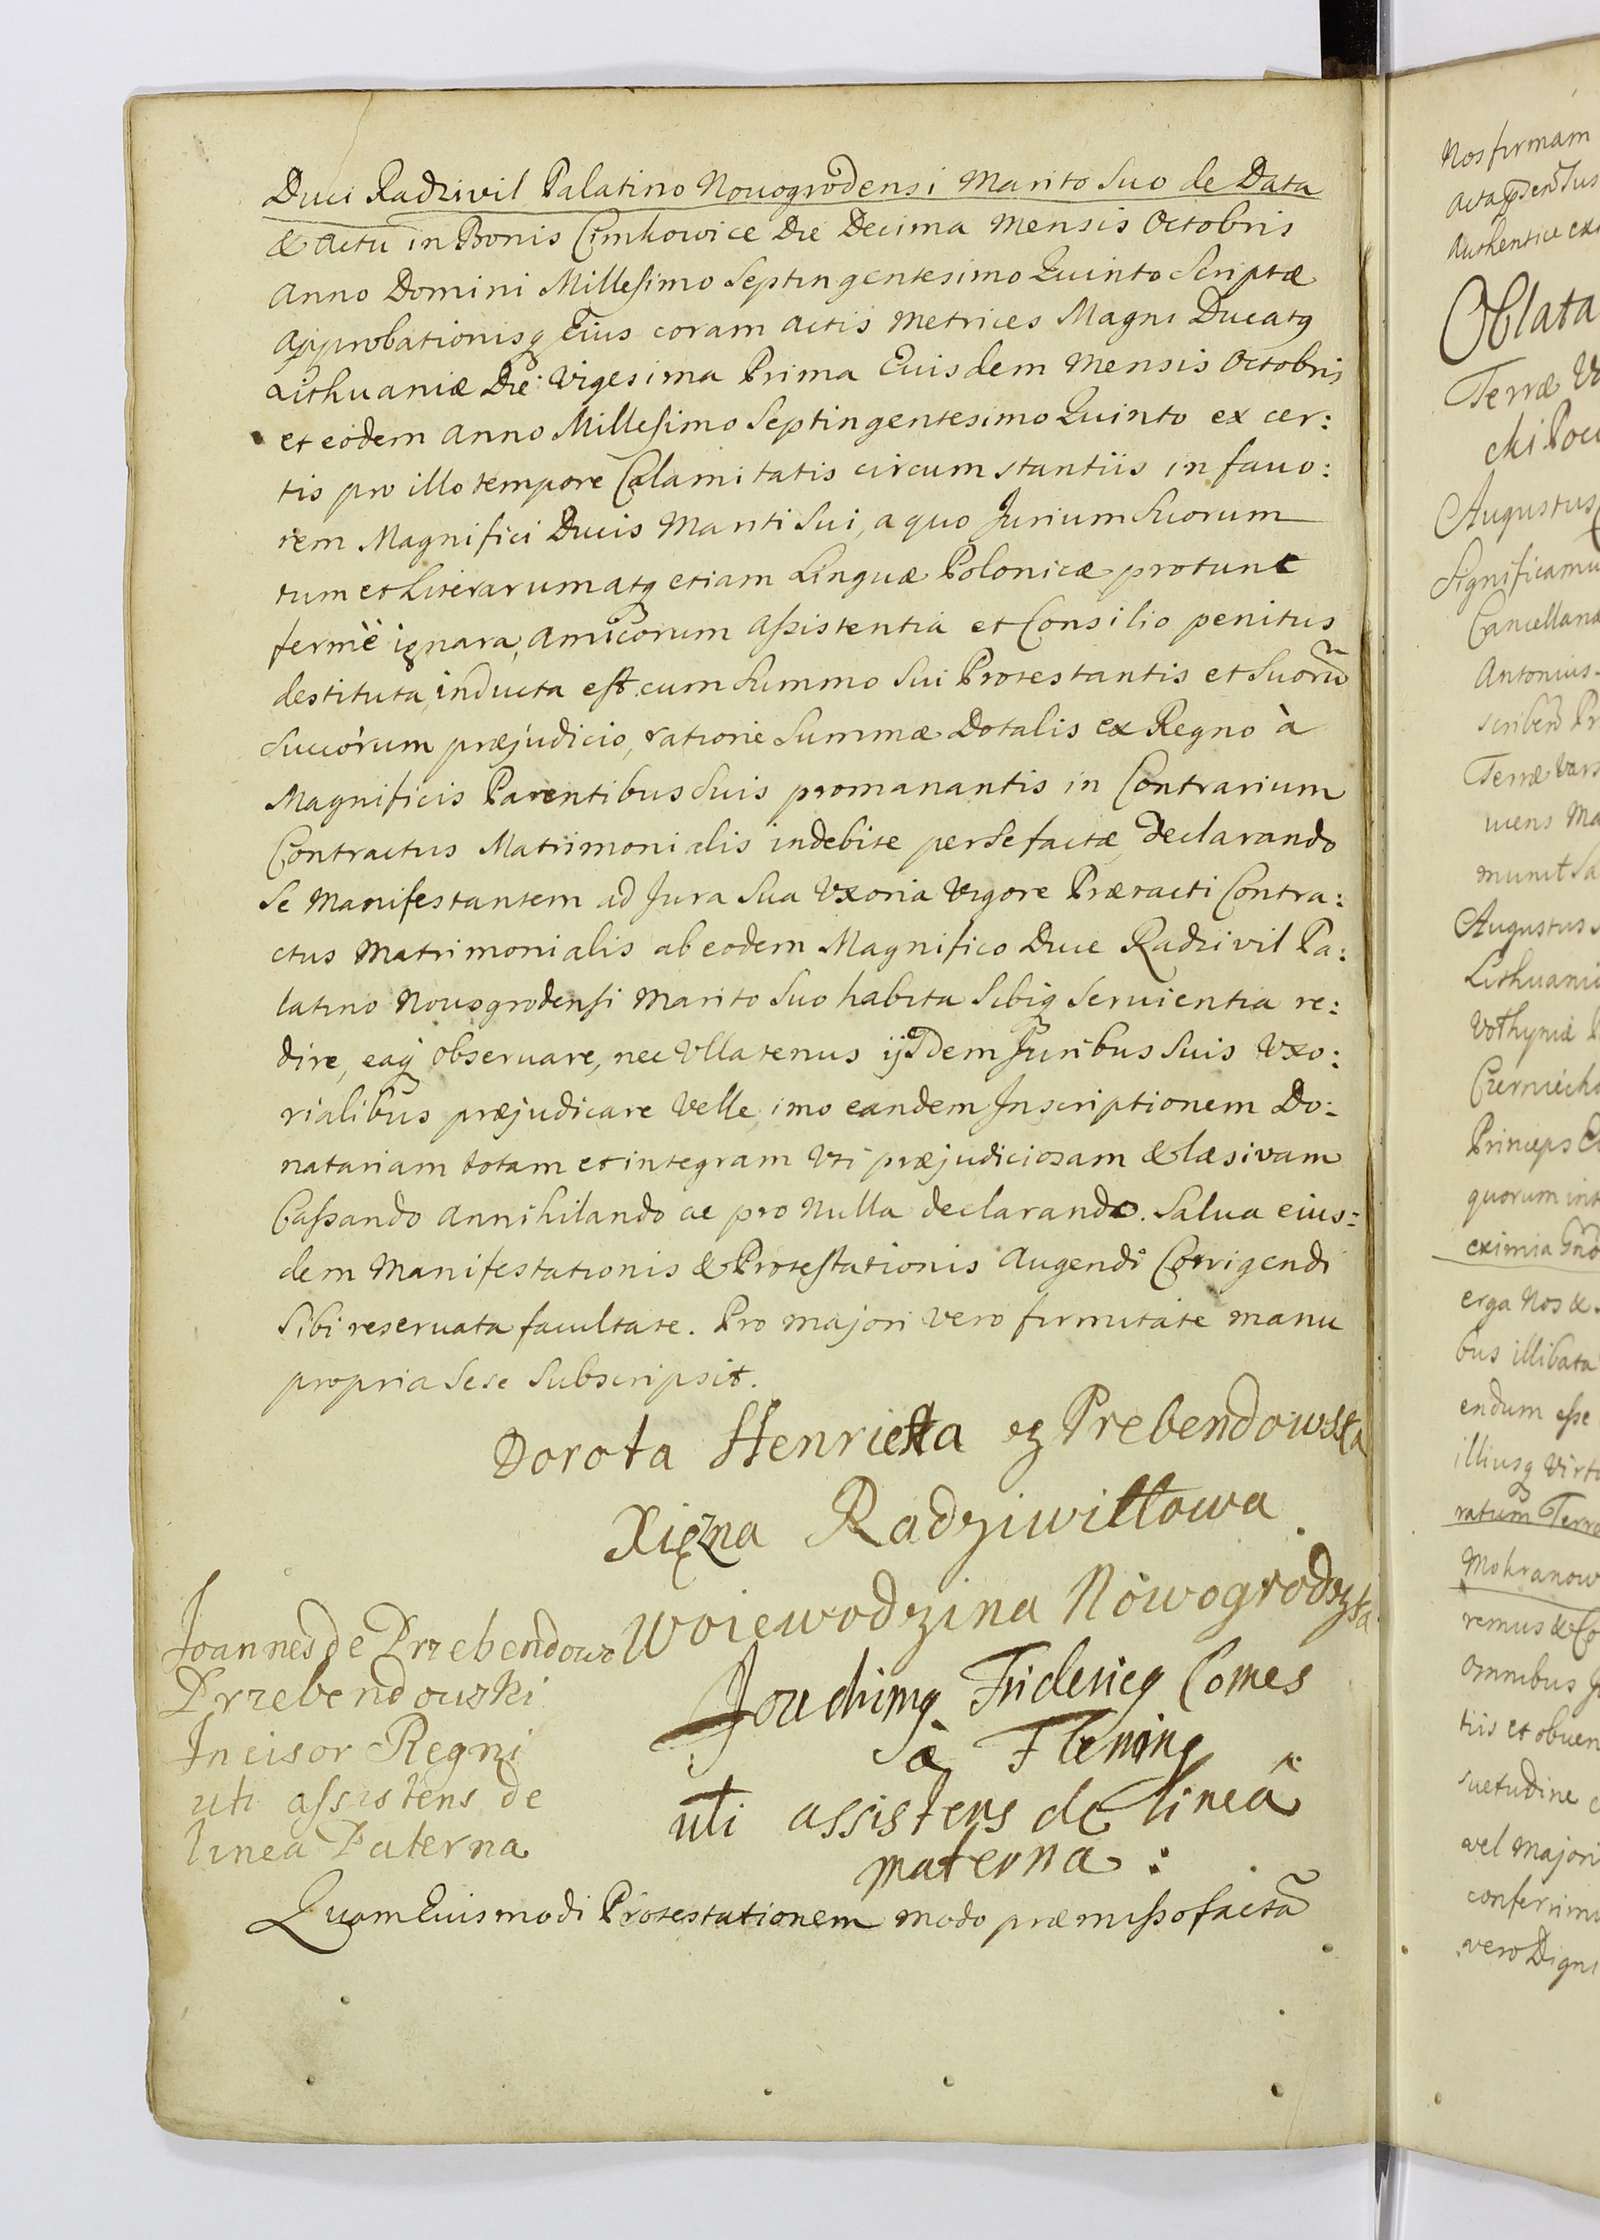 Duci Radzivil Palatino Novogrodensi Marito Suo de Data
& Actu in Bonis Cimkowice Die Decima Mensis Octobris
Anno Domini Millesimo Septingentesimo Quinto Scriptæ
Approbationisq Eius coram actis Metrices Magni Ducatq
Lithuaniæ Die Vigesima Prima Euisdem Mensis Octobris
et eodem Anno Millesimo Septingentesimo Quinto ex cer:
tis pro illo tempore Calamitatis circumstantiis in favo:
rem Magnifici Ducis Mariti Sui, a quo Jurium Suorum
tum et Literarum atq etiam Linguæ Polonicæ protunc
fermè ignara, Amicorum Assistentia et Consilio penitus
destituta, inducta est, cum Summo Sui Protestantis et Suorũ
Succorum præjudicio, ratione Summæ Dotalis ex Regno à
Magnificis Parentibus Suis promanantis in Contrarium
Contractus Matrimonialis indebite per Se factæ, Declarando
Se Manifestantem ad Jura Sua Uxoria Vigore Præracti Contra:
ctus Matrimonialis ab eodem Magnifico Duce Radzivil Pa:
latino Novogrodensi Marito Suo habita Sibiq Servientia re:
dire, eaq observare, nec Ullatenus ijsdem Juribus Suis Uxo:
rialibus præjudicare Velle, imo eandem Inscriptionem Do:
natariam totam et integram Uti præjudiciosam & læsivam
Cassando Annihilando ac pro Nulla declarando. Salva eius:
dem Manifestationis & Protestationis Augendi Corrigendi
Sibi reservata facultate. Pro majori vero firmitate manu
propria Sese Subscripsit.
Dorota Henrietta z Prebendowska
Xięzna Radziwiłłowa
Woiewodzina Nowogrodzka
Joannes de Przebendowo
Przebendowski
Incisor Regni
uti assistens de
linea Paterna
Joachimq Fridericq Comes
à Fleming
uti assistens de linea
materna:
Quam Euismodi Protestationem modo præmisso factã
Nos firmam
Authentice
Oblata
Terræ
Augustus
Significamus
Antonius
Terræ
Augustus
Lithuaniæ
Princeps
quorum
eximia
erga Nos &
bus illibata
endum esse
illiusq
ratum Terræ
Mokranow
remus
omnibus
tiis et
suetudine
vel Majori
vero Digni